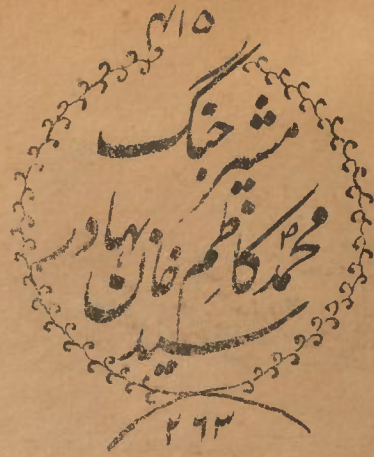 مشیر جنگ
محمد کاظم خان بهادر
سید
۲۶۳